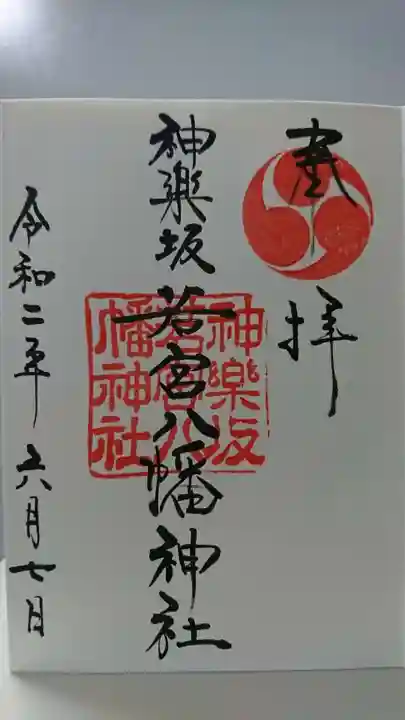 奉拝
神楽坂若宮八幡神社
令和二年六月七日
神楽坂
若宮八
幡神社